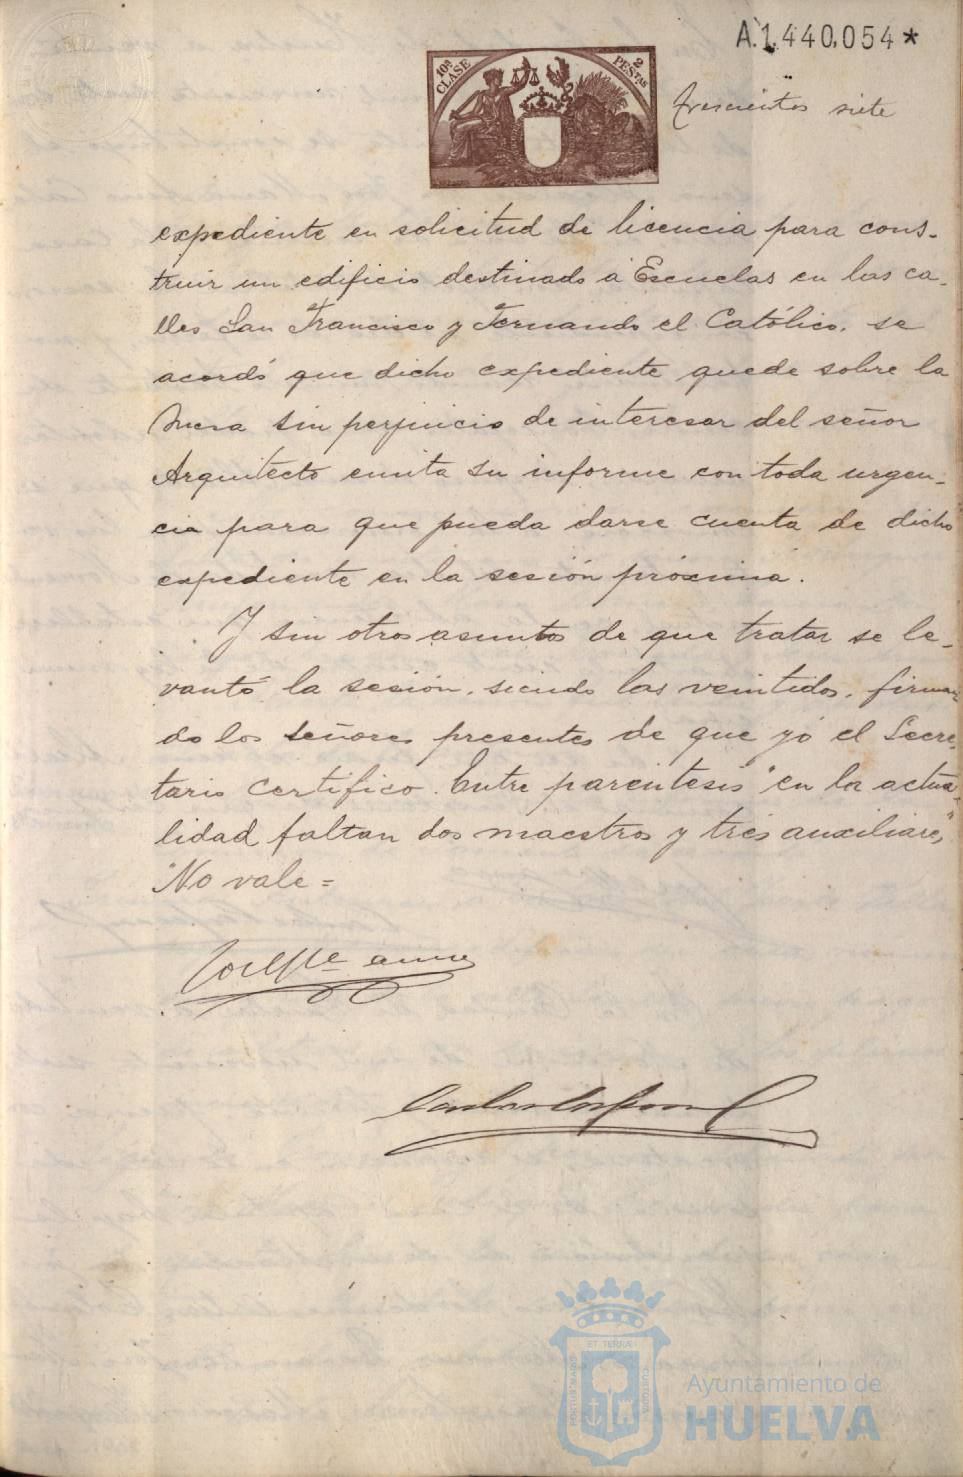 A.1.440.054*
10ª CLASE
2 PESTAS
Trescientos siete
expediente en solicitud de licencia para cons-
truir un edificio destinado á Escuelas en las ca-
lles San Francisco y Fernando el Católico, se
acordó que dicho expediente quede sobre la
Mesa sin perjuicio de interesar del señor
Arquitecto emita su informe con toda urgen-
cia para que pueda darse cuenta de dicho
expediente en la sesión próxima.
Y sin otros asuntos de que tratar se le-
vantó la sesión, siendo las veintidos, firman-
do los señores presentes de que yó el Secre-
tario certifico. Entre parentesis "en la actua-
lidad faltan dos maestros y tres auxiliares,"
"No vale=
ET TERRA
PORTUS MARIS
CUSTODIA
Ayuntamiento de
HUELVA